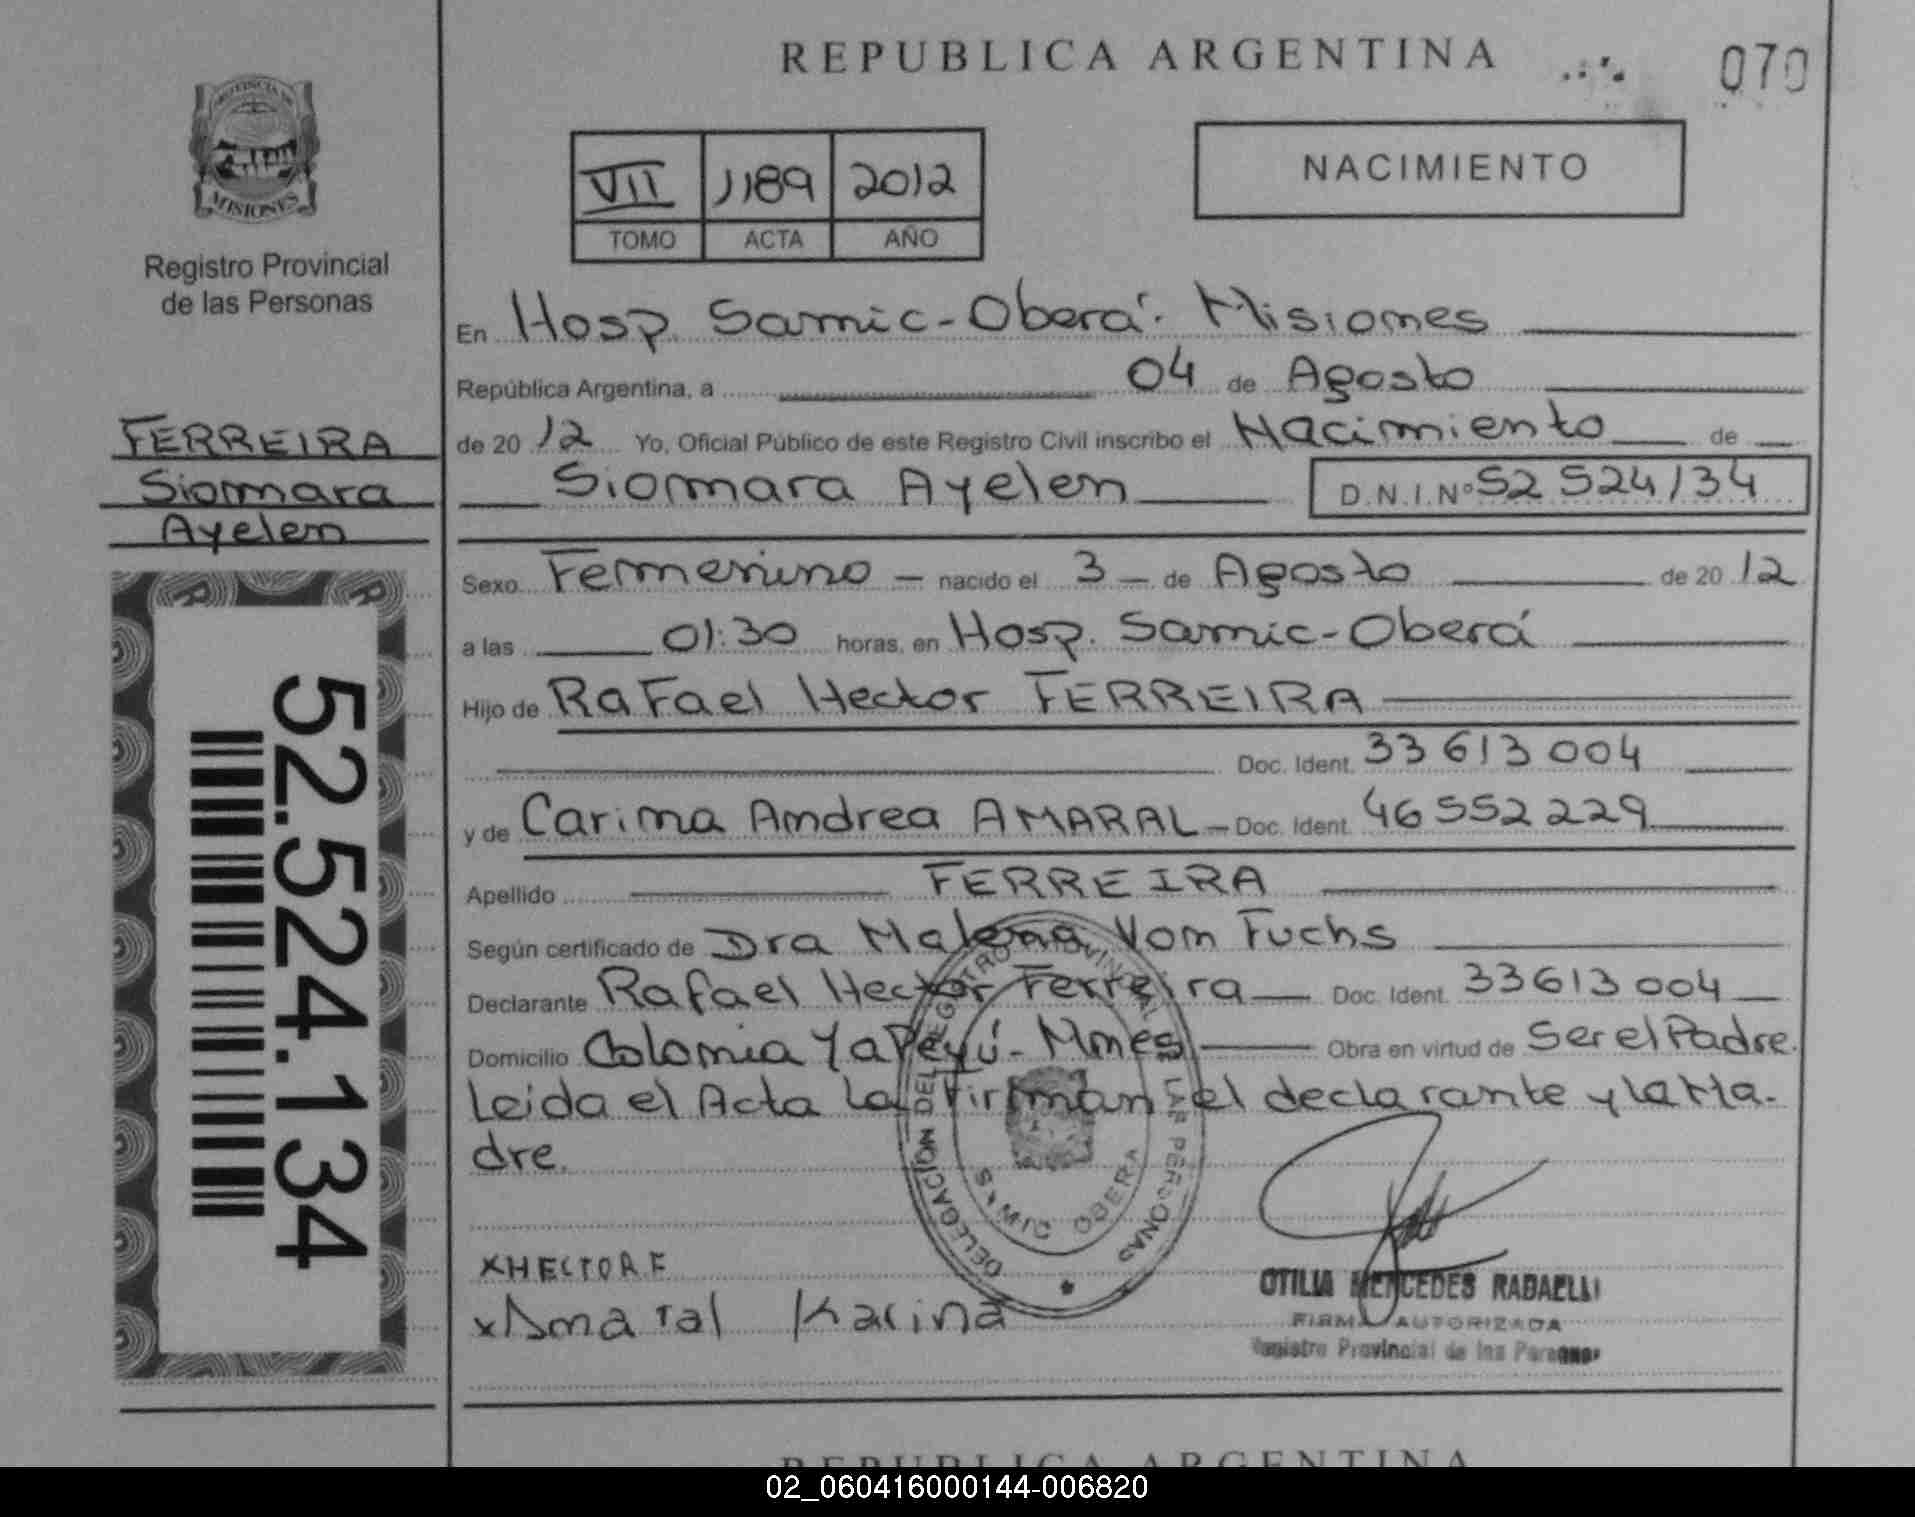 REPUBLICA ARGENTINA
070
PROVINCIA DE
MISIONES
Registro Provincial
de las Personas
FERREIRA
Siomara
Ayelen
52.524.134
VII 1189 2012
TOMO ACTA AÑO
NACIMIENTO
En Hosp. Samic-Oberá. Misiones
República Argentina, a 04 de Agosto
de 2012 Yo, Oficial Público de este Registro Civil inscribo el Nacimiento de
Siomara Ayelen D.N.I.Nº 52 524134
Sexo Femenino nacido el 3 de Agosto de 2012
a las 01:30 horas, en Hosp. Samic-Oberá
Hijo de Rafael Hector FERREIRA
Doc. Ident. 33 613 004
y de Carina Andrea AMARAL Doc. Ident. 46 552 229
Apellido FERREIRA
Según certificado de Dra Malena Von Fuchs
Declarante Rafael Hector Ferreira Doc. Ident. 33613 004
Domicilio Colonia Yapeyú - Mnes Obra en virtud de Ser el Padre.
Leida el Acta la Firman el declarante y la Ma-
dre.
DELEGACIÓN DEL REGISTRO PROVINCIAL DE LAS PERSONAS
OBERA
x HECTOR F
x Amaral Karina
OTILIA MERCEDES RADAELLI
FIRMA AUTORIZADA
Registro Provincial de las Personas
REPUBLICA ARGENTINA
02_060416000144-006820